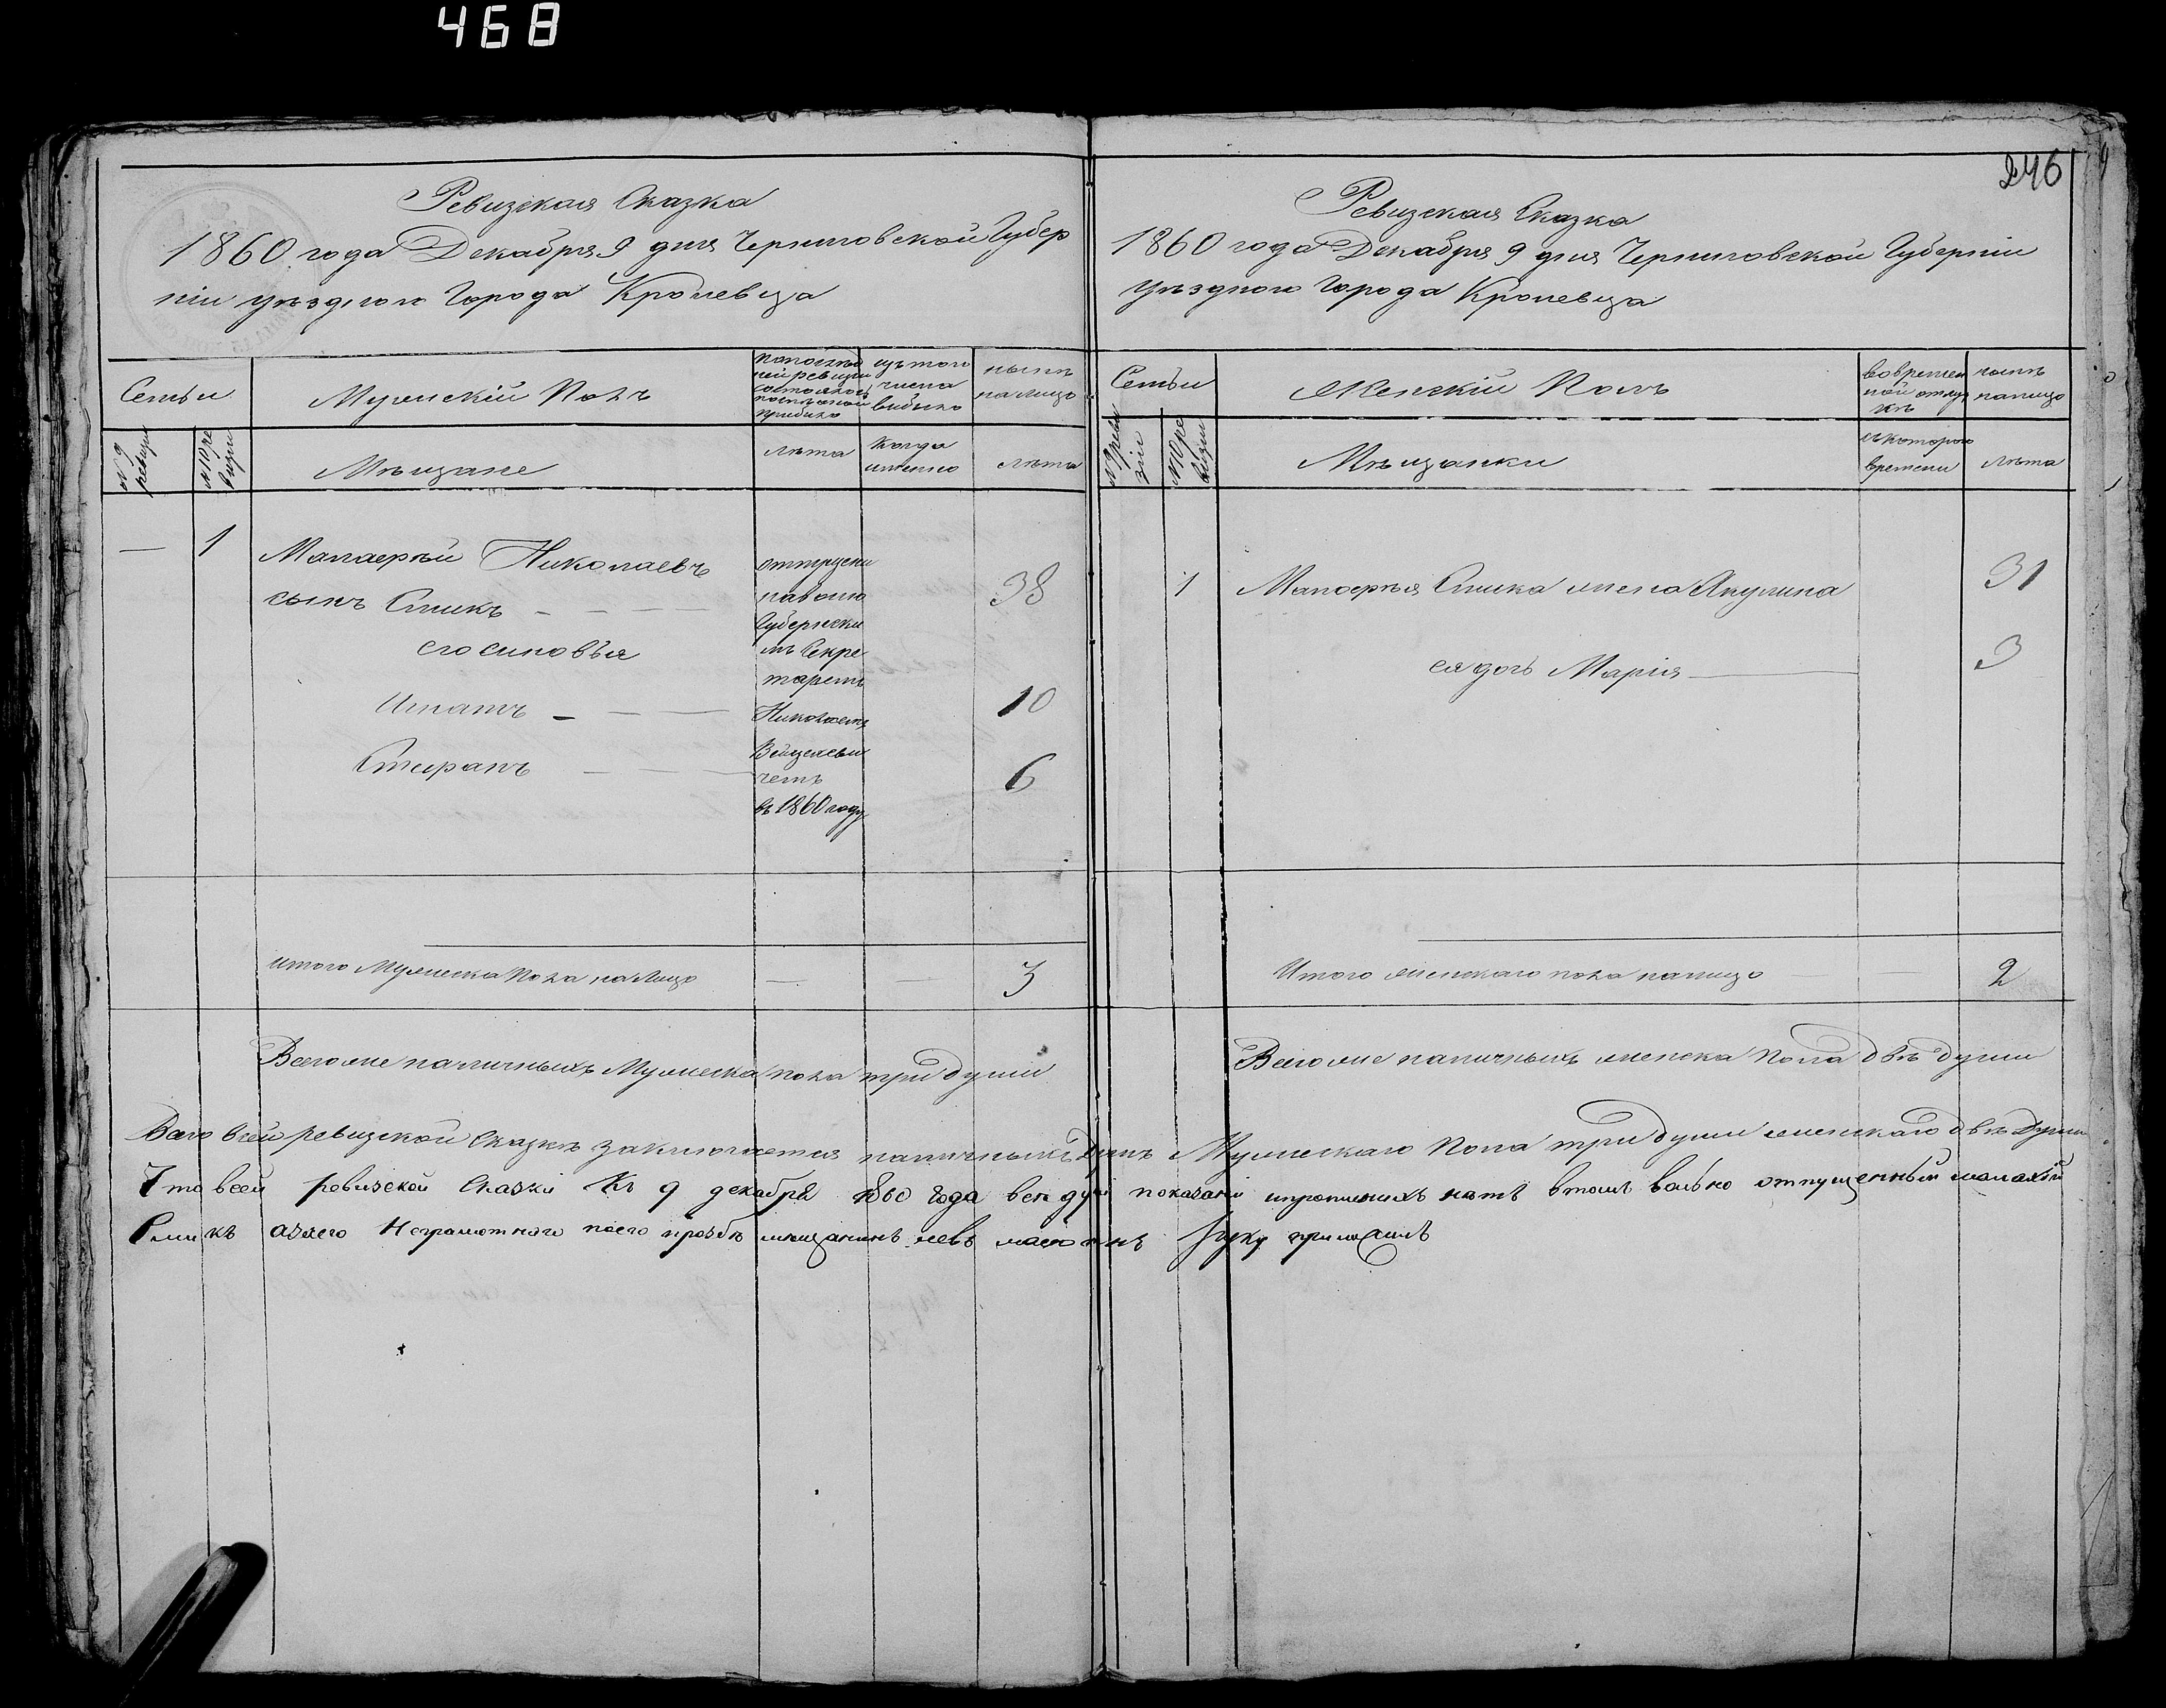 468
246
Ревизская Сказка
1860 года Декабря 9 дня Черниговской Губер
ніи уѣзднаго Города Кролевца
Семьи
Мужескій Полъ
изъ того
числа
выбыло
нынѣ
на лицо
№ 9
ревизіи
№ 10 ре
визіи
Мѣщане
лѣта
когда
именно
лѣта
— 1
Малафѣй Николаевъ
сынъ
38
его синовья
Игнатъ 10
Стефанъ 6
отпущени
на волю
Губернски
мъ Секре
таремъ
Николаемъ
въ 1860 году
итого Мужеска Пола на Лицо — — 3
Всего же наличныхъ Мужеска пола три души
Ревизская Сказка
1860 года Декабря 9 дня Черниговской Губерніи
Уѣзднаго Города Кролевца
Семьи
Женскій Полъ
во времен
ной отлуч
кѣ
нынѣ
на лицо
№ 9 реви
зіи
№ 10 ре
визіи
Мѣщанки
съ котораго
времени
лѣта
1 Малафѣя жена Акулина 31
ея дочь Марія 3
Итого женскаго пола на лицо 2
Всего же наличныхъ женска пола двѣ души
Всего въ сей ревизской Сказкѣ заключается наличныхъ Душъ Мужескаго Пола три души женскаго двѣ Души
Что всей ревизской Сказки Къ 9 декабря 1860 года всѣ душі показани нѣтъ втомъ вольно отпущенный малахій
азаего Неграмотнаго поего прозбѣ мещанинъ левъ руку приложилъ